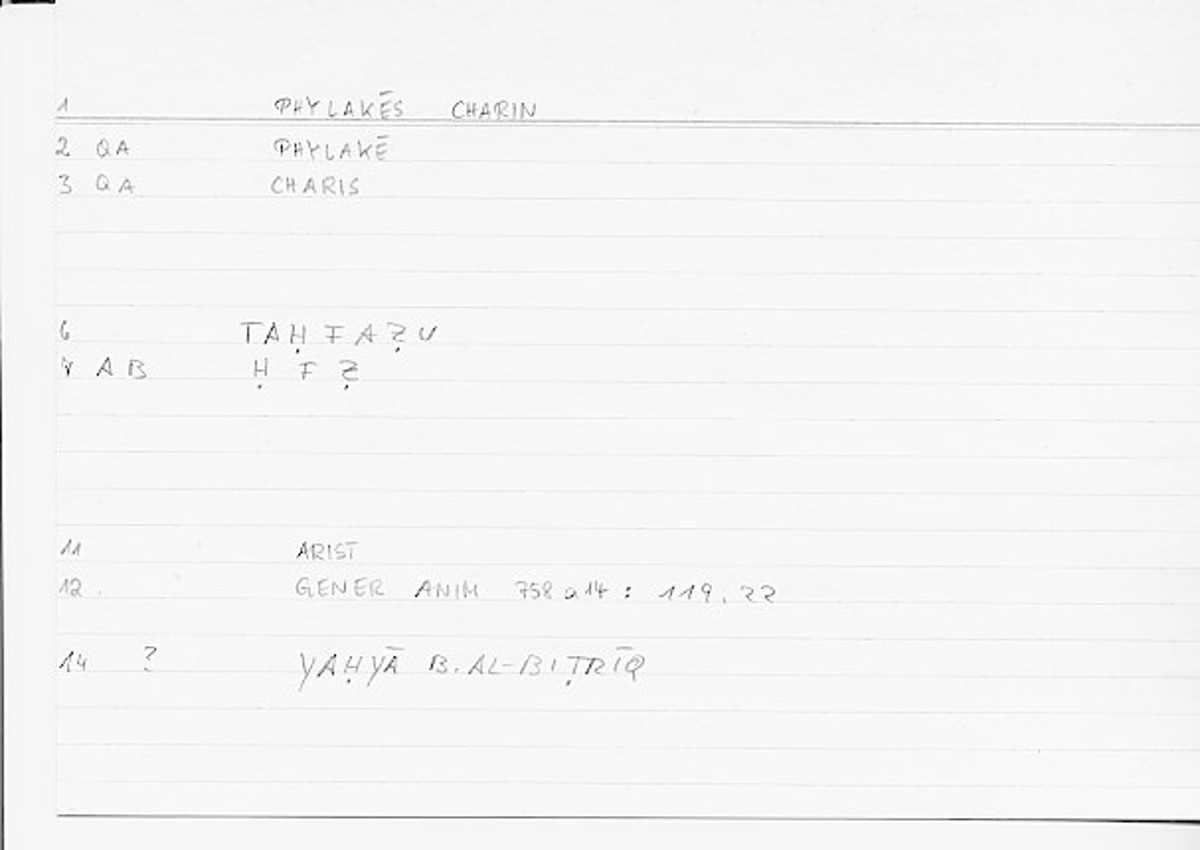 1 PHYLAKĒS CHARIN
2 QA PHYLAKĒ
3 QA CHARIS
6 TAḤFAẒU
7 AB Ḥ F Ẓ
11 ARIST
12. GENER ANIM 758 a 14 : 119.22
14 ? YAḤYĀ B. AL-BIṬRĪQ